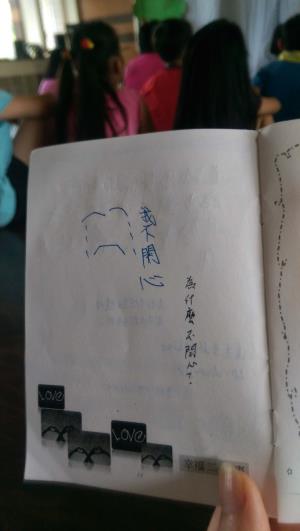 我不開心
為什麼不開心?
LOVE
LOVE
幸福二